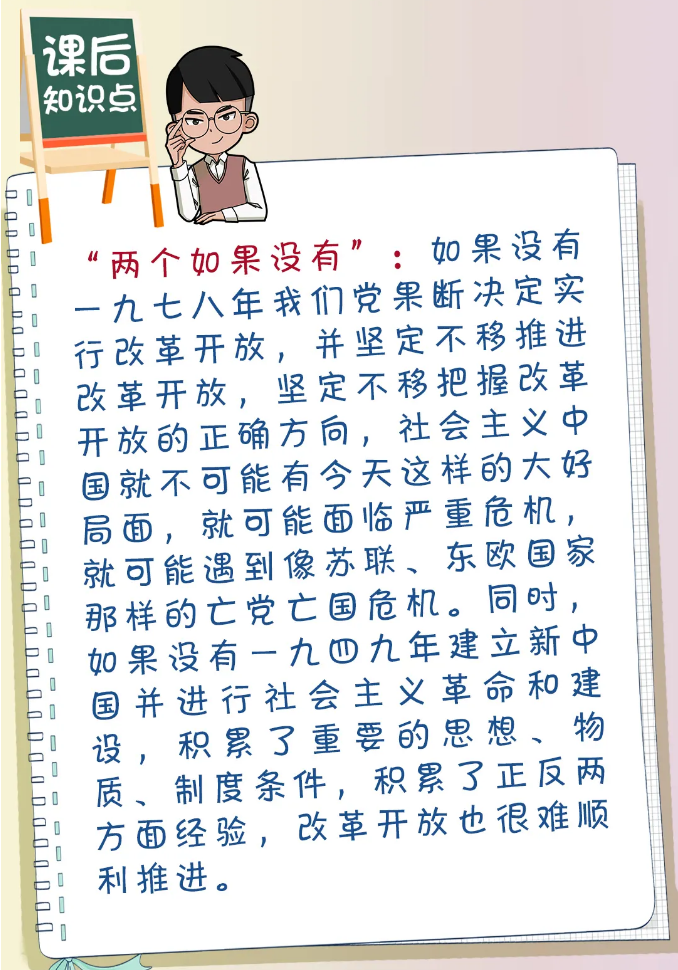 课后
知识点
“两个如果没有”：如果没有
一九七八年我们党果断决定实
行改革开放，并坚定不移推进
改革开放，坚定不移把握改革
开放的正确方向，社会主义中
国就不可能有今天这样的大好
局面，就可能面临严重危机，
就可能遇到像苏联、东欧国家
那样的亡党亡国危机。同时，
如果没有一九四九年建立新中
国并进行社会主义革命和建
设，积累了重要的思想、物
质、制度条件，积累了正反两
方面经验，改革开放也很难顺
利推进。